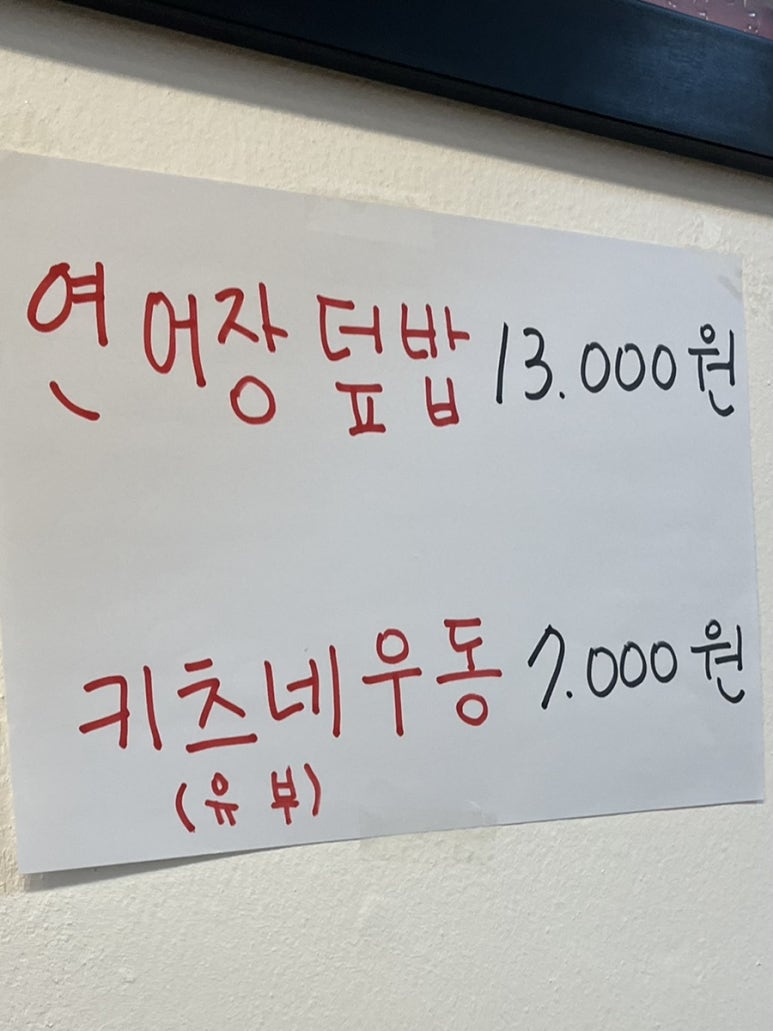 연어장 덮밥 13.000원
키츠네우동 7.000원
(유부)